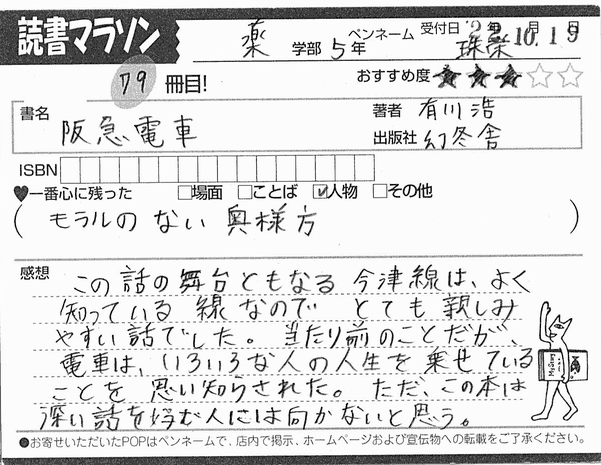 読書マラソン
薬 学部 5年 ペンネーム 珠菜 受付日 年 月 日
10.19
79 冊目!
おすすめ度 ★★★☆☆
書名 阪急電車
著者 有川浩
出版社 幻冬舎
ISBN
♥一番心に残った □場面 □ことば ☑人物 □その他
(モラルの ない 奥様方)
感想
この話の舞台ともなる 今津線は、よく
知っている 線なので とても 親しみ
やすい話でした。当たり前のことだが、
電車は、いろいろな人の人生を 乗せている
ことを 思い知らされた。ただ、この本は
深い話を好む人には向かないと思う。
●お寄せいただいたPOPはペンネームで、店内で掲示、ホームページおよび宣伝物への転載をご了承ください。